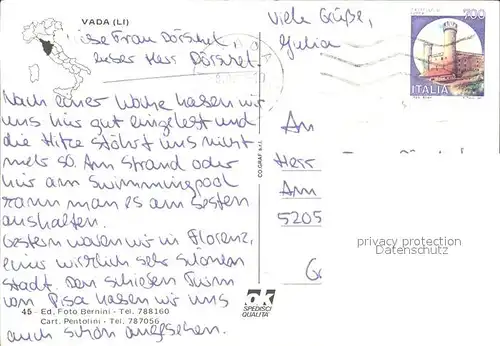 VADA (LI)
Liebe Frau Dörstel,
lieber Herr Dörstel.
Nach einer Woche haben wir
uns hier gut eingelebt und
die Hitze stöhrt uns nicht
mehr so. Am Strand oder
hier am Swimmingpool
kann man es am besten
aushalten.
Gestern waren wir in Florenz,
einer wirklich sehr schönen
Stadt. Den schiefen Turm
von Pisa haben wir uns
auch schon angesehen.
Viele Grüße,
Julia
700
ITALIA
An
Herr
Am
5205
privacy protection
Datenschutz
CO.GRAF s.r.l.
ok
SPEDISCI
QUALITA'
45 - Ed. Foto Bernini - Tel. 788160
Cart. Pentolini - Tel. 787056